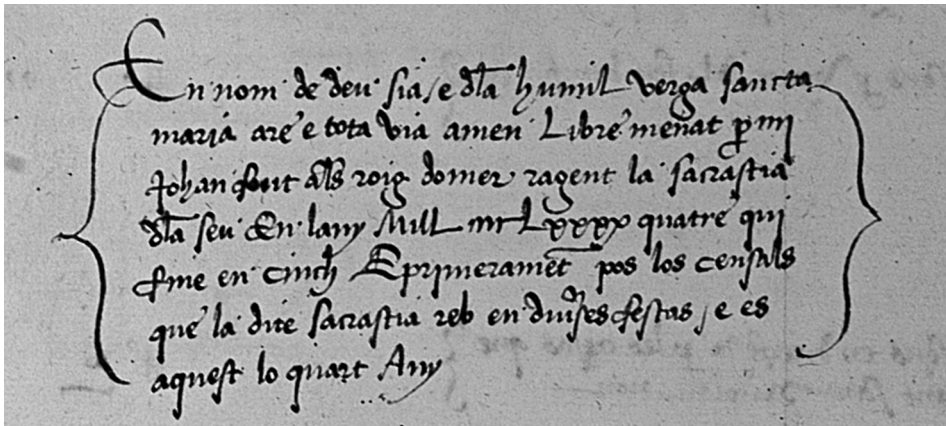 En nom de deu sia, e dla humil verga sancta
maria are e tota via amen Libre menat p mi
Johan font als roig domer ragent la sacrastia
dla seu En lany Mill iiii Lxxxx quatre qui
fine en cinch E primeramet pos los censals
que la dite sacrastia reb en divses festas, e es
aquest lo quart Any